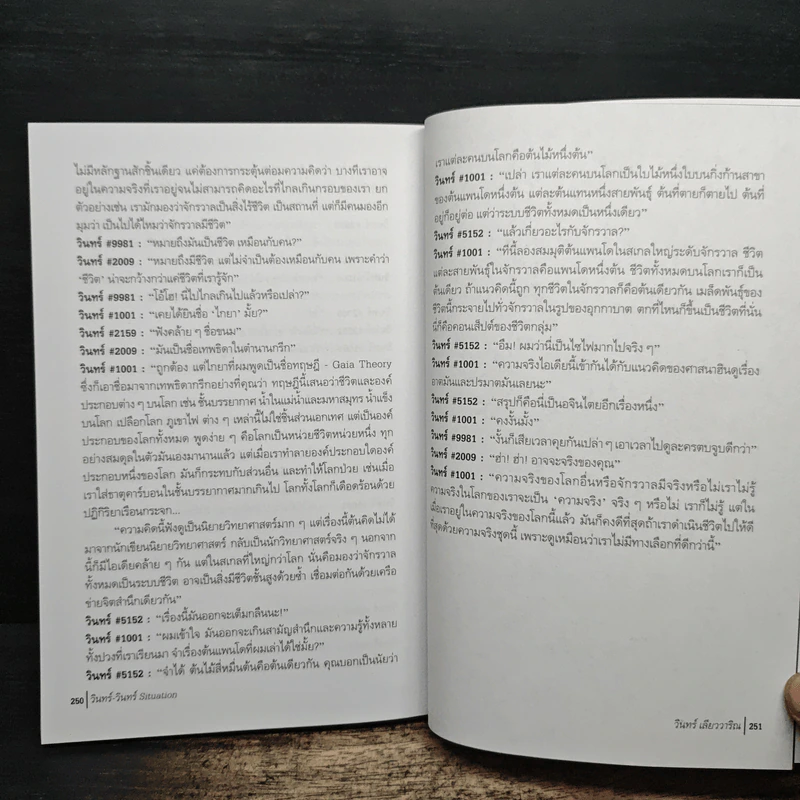 ไม่มีหลักฐานสักชิ้นเดียว แค่ต้องการกระตุ้นต่อมความคิดว่า บางทีเราอาจ
อยู่ในความจริงที่เราอยู่จนไม่สามารถคิดอะไรที่ไกลเกินกรอบของเรา ยก
ตัวอย่างเช่น เรามักมองว่าจักรวาลเป็นสิ่งไร้ชีวิต เป็นสถานที่ แต่ก็มีคนมองอีก
มุมว่า เป็นไปได้ไหมว่าจักรวาลมีชีวิต”
วินทร์ #9981 : “หมายถึงมันเป็นชีวิต เหมือนกับคน?”
วินทร์ #2009 : “หมายถึงมีชีวิต แต่ไม่จำเป็นต้องเหมือนกับคน เพราะคำว่า
‘ชีวิต’ น่าจะกว้างกว่าแค่ชีวิตที่เรารู้จัก”
วินทร์ #9981 : “โอ้โฮ! นี่ไปไกลเกินไปแล้วหรือเปล่า?”
วินทร์ #1001 : “เคยได้ยินชื่อ ‘ไกยา’ มั้ย?”
วินทร์ #2159 : “ฟังคล้าย ๆ ชื่อขนม”
วินทร์ #2009 : “มันเป็นชื่อเทพธิดาในตำนานกรีก”
วินทร์ #1001 : “ถูกต้อง แต่ไกยาที่ผมพูดเป็นชื่อทฤษฎี - Gaia Theory
ซึ่งก็เอาชื่อมาจากเทพธิดากรีกอย่างที่คุณว่า ทฤษฎีนี้เสนอว่าชีวิตและองค์
ประกอบต่าง ๆ บนโลก เช่น ชั้นบรรยากาศ น้ำในแม่น้ำและมหาสมุทร น้ำแข็ง
บนโลก เปลือกโลก ภูเขาไฟ ต่าง ๆ เหล่านี้ไม่ใช่ชิ้นส่วนเอกเทศ แต่เป็นองค์
ประกอบของโลกทั้งหมด พูดง่าย ๆ คือโลกเป็นหน่วยชีวิตหน่วยหนึ่ง ทุก
อย่างสมดุลในตัวมันเองมานานแล้ว แต่เมื่อเราทำลายองค์ประกอบใดองค์
ประกอบหนึ่งของโลก มันก็กระทบกับส่วนอื่น และทำให้โลกป่วย เช่นเมื่อ
เราใส่ธาตุคาร์บอนในชั้นบรรยากาศมากเกินไป โลกทั้งโลกก็เดือดร้อนด้วย
ปฏิกิริยาเรือนกระจก...
“ความคิดนี้ฟังดูเป็นนิยายวิทยาศาสตร์มาก ๆ แต่เรื่องนี้ต้นคิดไม่ได้
มาจากนักเขียนนิยายวิทยาศาสตร์ กลับเป็นนักวิทยาศาสตร์จริง ๆ นอกจาก
นี้ก็มีไอเดียคล้าย ๆ กัน แต่ในสเกลที่ใหญ่กว่าโลก นั่นคือมองว่าจักรวาล
ทั้งหมดเป็นระบบชีวิต อาจเป็นสิ่งมีชีวิตชั้นสูงด้วยซ้ำ เชื่อมต่อกันด้วยเครือ
ข่ายจิตสำนึกเดียวกัน”
วินทร์ #5152 : “เรื่องนี้มันออกจะเต็มกลืนนะ!”
วินทร์ #1001 : “ผมเข้าใจ มันออกจะเกินสามัญสำนึกและความรู้ทั้งหลาย
ทั้งปวงที่เราเรียนมา จำเรื่องต้นแพนโดที่ผมเล่าได้ใช่มั้ย?”
วินทร์ #5152 : “จำได้ ต้นไม้สี่หมื่นต้นคือต้นเดียวกัน คุณบอกเป็นนัยว่า
250 วินทร์-วินทร์ Situation
เราแต่ละคนบนโลกคือต้นไม้หนึ่งต้น”
วินทร์ #1001 : “เปล่า เราแต่ละคนบนโลกเป็นใบไม้หนึ่งใบบนกิ่งก้านสาขา
ของต้นแพนโดหนึ่งต้น แต่ละต้นแทนหนึ่งสายพันธุ์ ต้นที่ตายก็ตายไป ต้นที่
อยู่ก็อยู่ต่อ แต่ว่าระบบชีวิตทั้งหมดเป็นหนึ่งเดียว”
วินทร์ #5152 : “แล้วเกี่ยวอะไรกับจักรวาล?”
วินทร์ #1001 : “ทีนี้ลองสมมุติต้นแพนโดในสเกลใหญ่ระดับจักรวาล ชีวิต
แต่ละสายพันธุ์ในจักรวาลคือแพนโดหนึ่งต้น ชีวิตทั้งหมดบนโลกเราก็เป็น
ต้นเดียว ถ้าแนวคิดนี้ถูก ทุกชีวิตในจักรวาลก็คือต้นเดียวกัน เมล็ดพันธุ์ของ
ชีวิตนี้กระจายไปทั่วจักรวาลในรูปของอุกกาบาต ตกที่ไหนก็ขึ้นเป็นชีวิตที่นั่น
นี่ก็คือคอนเส็ปต์ของชีวิตกลุ่ม”
วินทร์ #5152 : “อืม! ผมว่านี่เป็นไซไฟมากไปจริง ๆ”
วินทร์ #1001 : “ความจริงไอเดียนี้เข้ากันได้กับแนวคิดของศาสนาฮินดูเรื่อง
อาตมันและปรมาตมันเลยนะ”
วินทร์ #5152 : “สรุปก็คือนี่เป็นอจินไตยอีกเรื่องหนึ่ง”
วินทร์ #1001 : “คงงั้นมั้ง”
วินทร์ #9981 : “งั้นก็เสียเวลาคุยกันเปล่า ๆ เอาเวลาไปดูละครตบจูบดีกว่า”
วินทร์ #2009 : “ฮ่า! ฮ่า! อาจจะจริงของคุณ”
วินทร์ #1001 : “ความจริงของโลกอื่นหรือจักรวาลมีจริงหรือไม่เราไม่รู้
ความจริงในโลกของเราจะเป็น ‘ความจริง’ จริง ๆ หรือไม่ เราก็ไม่รู้ แต่ใน
เมื่อเราอยู่ในความจริงของโลกนี้แล้ว มันก็คงดีที่สุดถ้าเราดำเนินชีวิตไปให้ดี
ที่สุดด้วยความจริงชุดนี้ เพราะดูเหมือนว่าเราไม่มีทางเลือกที่ดีกว่านี้”
วินทร์ เลียววาริณ 251